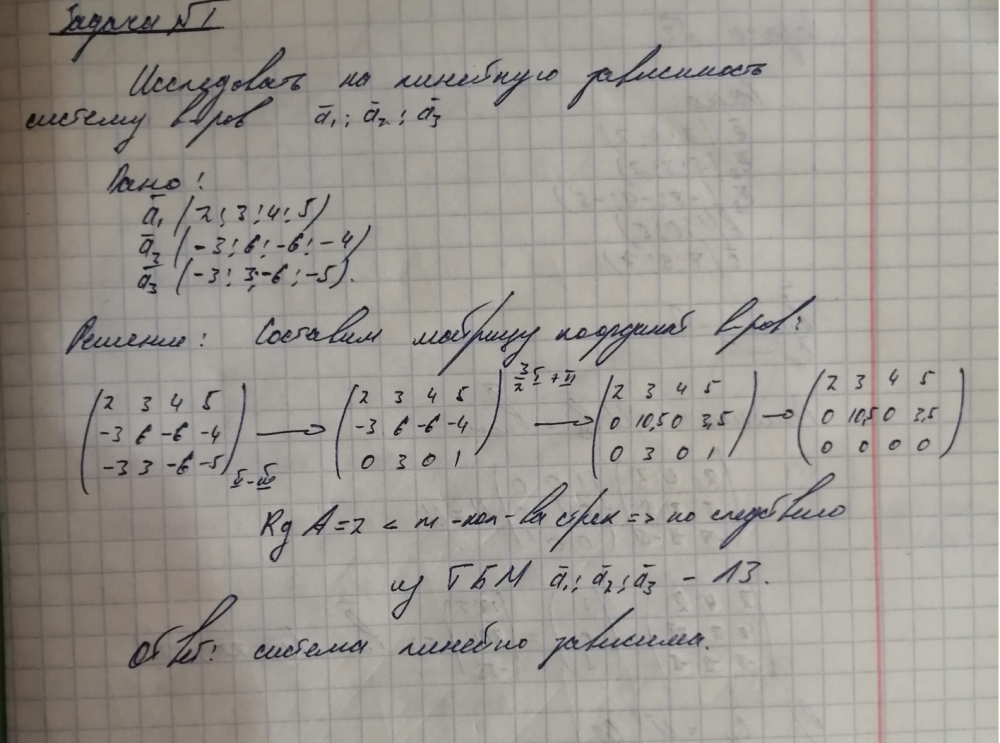 Задача №1
Исследовать на линейную зависимость
систему в-ров ā₁; ā₂; ā₃
Дано:
ā₁ (2; 3; 4; 5)
ā₂ (-3; 6; -6; -4)
ā₃ (-3; 3; -6; -5).
Решение: Составим матрицу координат в-ров:
(2 3 4 5 → (2 3 4 5) 3/2 I + II → (2 3 4 5) → (2 3 4 5)
-3 6 -6 -4 -3 6 -6 -4 0 10,5 0 3,5 0 10,5 0 3,5
-3 3 -6 -5) II-III 0 3 0 1 0 3 0 1 0 0 0 0
Rg A = 2 < m - кол-ва строк => по следствию
из ТБМ ā₁; ā₂; ā₃ - ЛЗ.
Ответ: система линейно зависима.